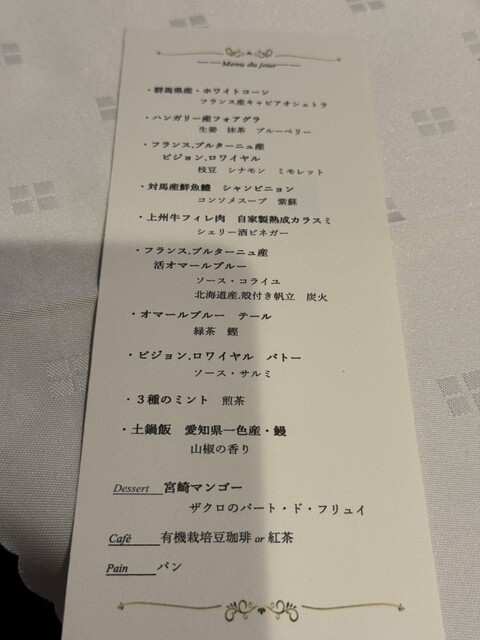 Menu du jour
・群馬県産・ホワイトコーン
フランス産キャビアオシェトラ
・ハンガリー産フォアグラ
生姜 抹茶 ブルーベリー
・フランス.ブルターニュ産
ピジョン.ロワイヤル
枝豆 シナモン ミモレット
・対馬産鮮魚鱧 シャンピニョン
コンソメスープ 紫蘇
・上州牛フィレ肉 自家製熟成カラスミ
シェリー酒ビネガー
・フランス.ブルターニュ産
活オマールブルー
ソース・コライユ
北海道産.殻付き帆立 炭火
・オマールブルー テール
緑茶 鰹
・ピジョン.ロワイヤル パトー
ソース・サルミ
・３種のミント 煎茶
・土鍋飯 愛知県一色産・鰻
山椒の香り
Dessert 宮崎マンゴー
ザクロのパート・ド・フリュイ
Café 有機栽培豆珈琲 or 紅茶
Pain パン